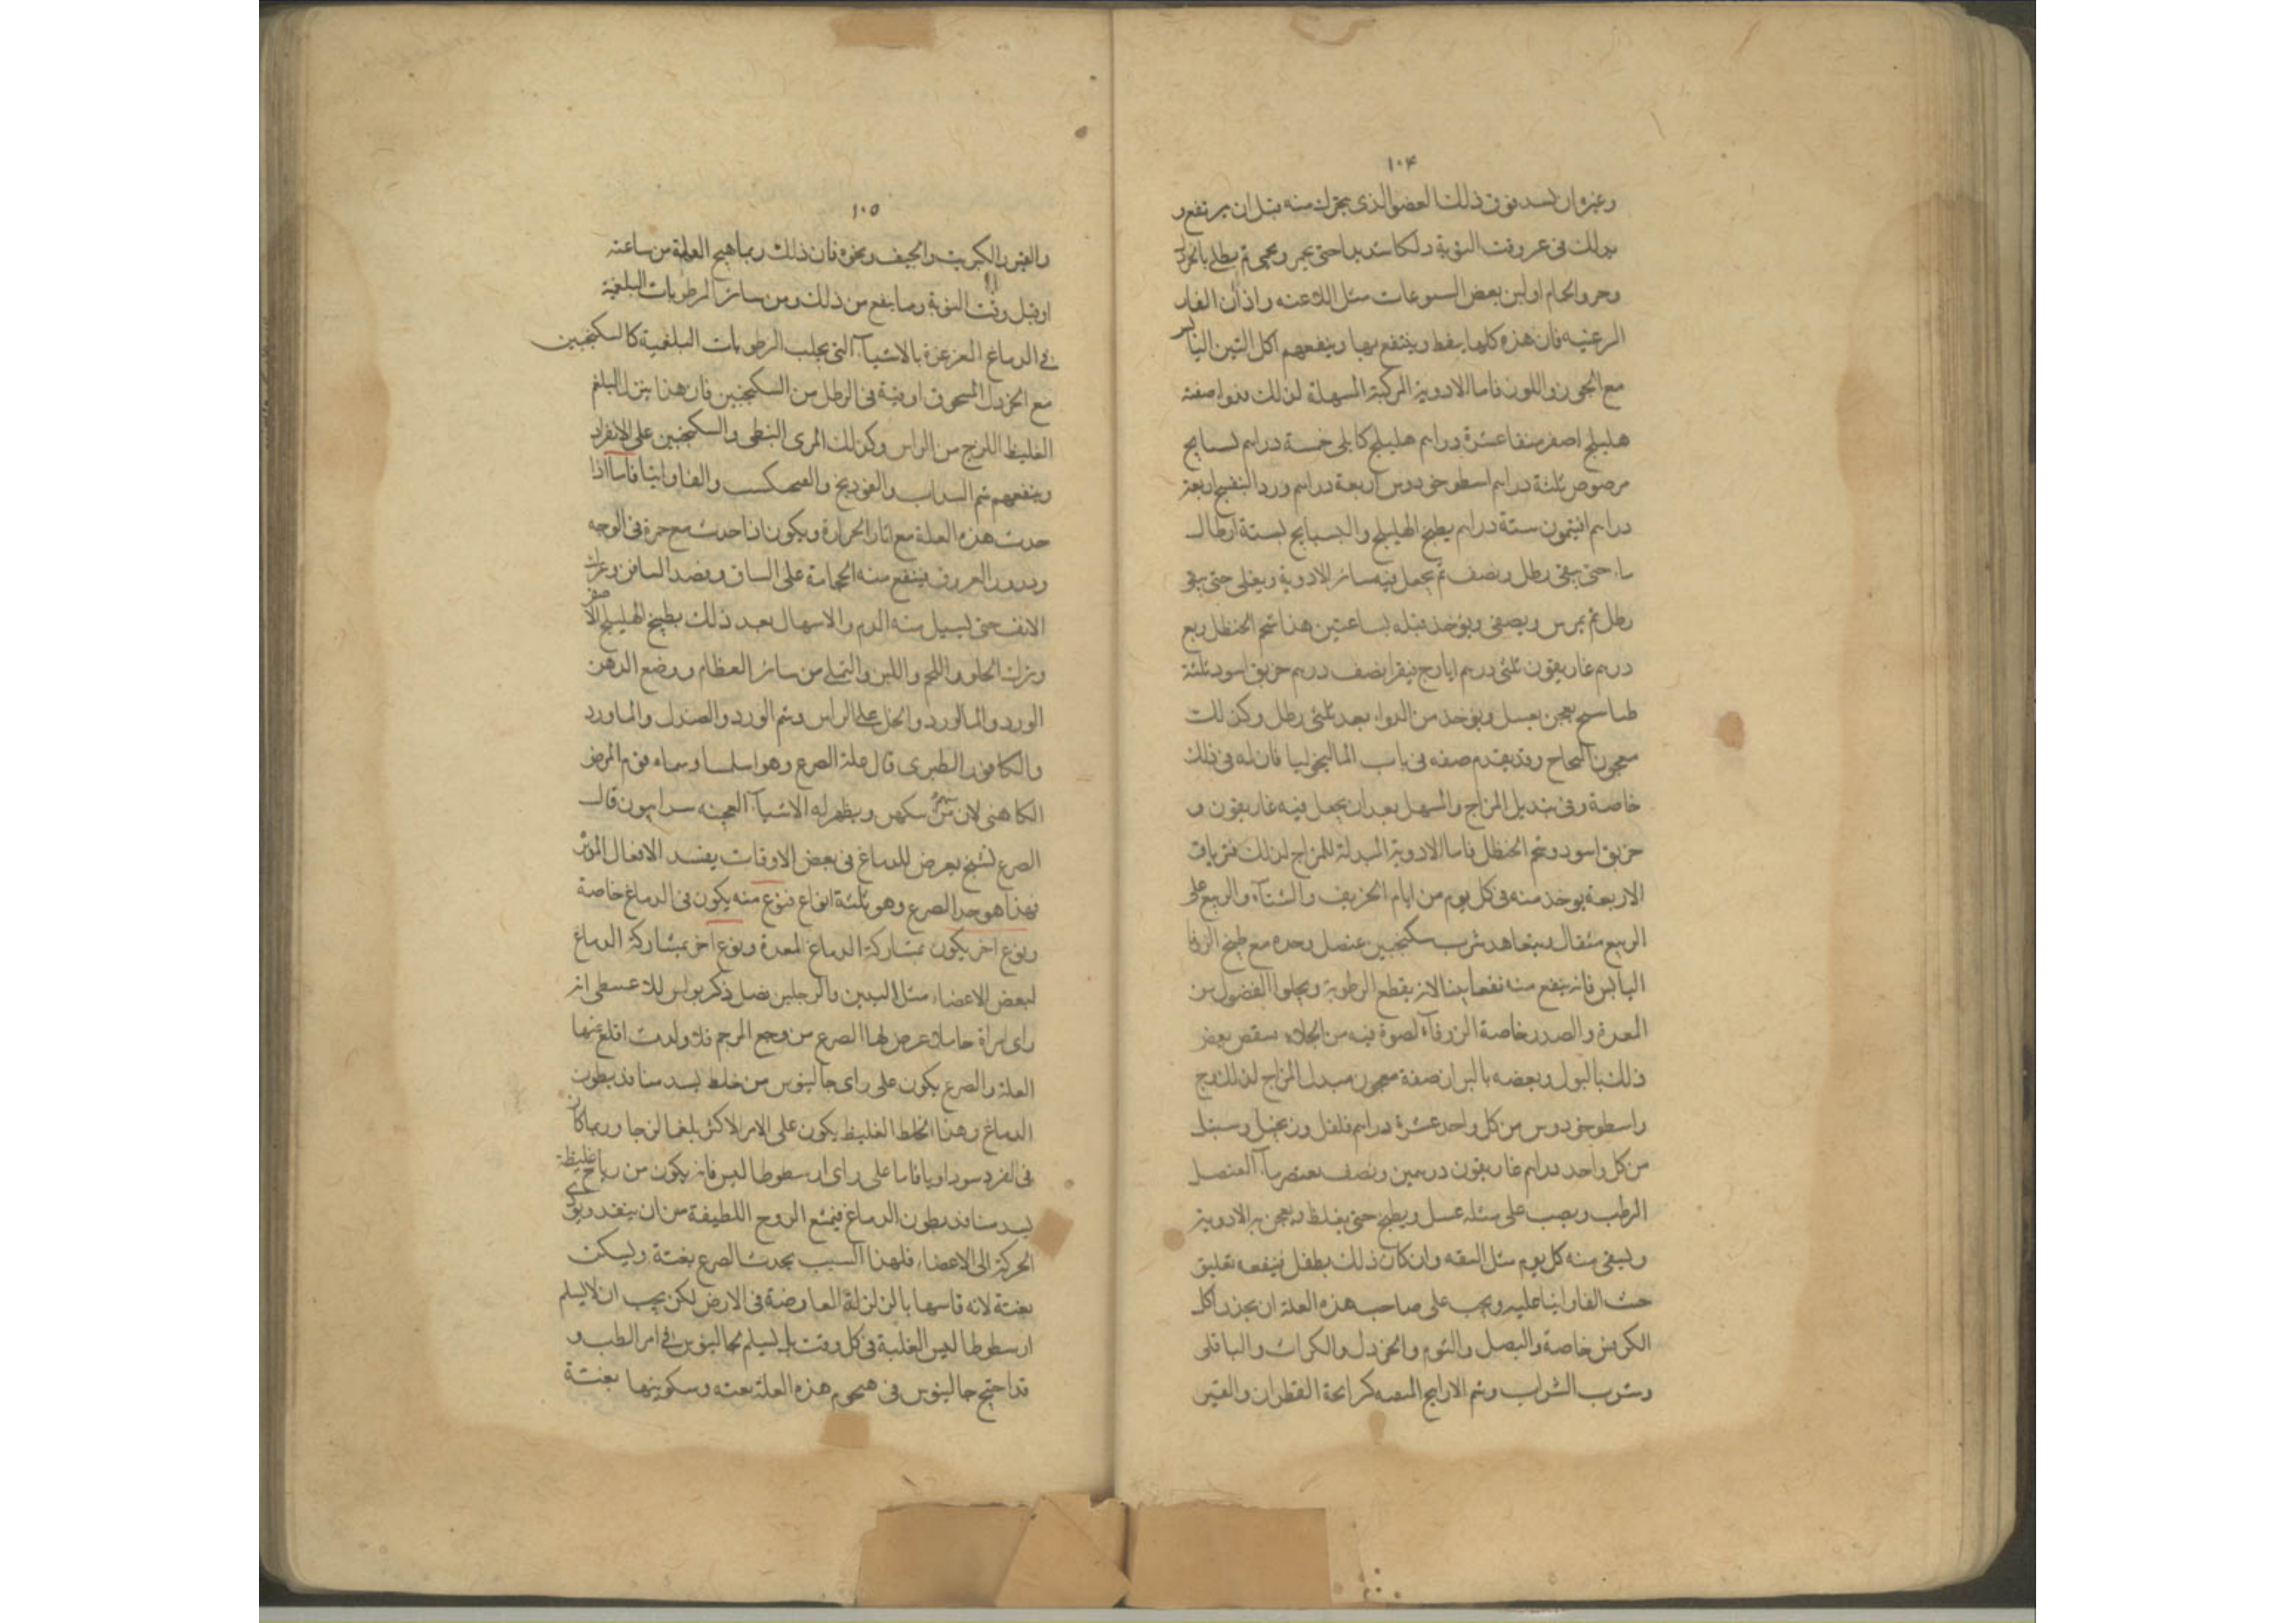 ۱۰۴
وغيره ان يسد فوق ذلك العضو الذى يتحرك منه قبل ان يرتفع و
يدلك فى غير وقت النوبة دلكا شديدا حتى يحمر ويحمى ثم يطلى بالخردل
وخرو الحمام او لبن بعض اليتوعات مثل اللاعنه واذان الفار
الرعنيه فان هذه كلها ينفط وينتفع بها وينفعهم اكل التين اليابس
مع الجوز واللوز فاما الادوية المركبة المسهلة لذلك فدوا صفته
هليلج اصفر منقا عشرة دراهم هليلج كابلى خمسة دراهم بسبايج
مرضوض ثلثة دراهم اسطوخودوس اربعة دراهم ورد البنفسج اربعة
دراهم افيتمون ستة دراهم يطبخ الهليلج والبسبايج بستة ارطال
ماء حتى يبقى رطل ونصف ثم يجعل فيه سائر الادوية ويغلى حتى يبقى
رطل ثم يمرس ويصفى ويؤخذ قبله بساعتين هذا شحم الحنظل ربع
درهم غاريقون ثلثى درهم ايارج فيقرا نصف درهم خربق اسود ثلثة
طساسيج يعجن بعسل ويؤخذ من الدواء بعد ثلثى رطل وكذلك
معجون النجاح وقد يقدم صفه فى باب الماليخوليا فان له فى ذلك
خاصة وفى تبديل المزاج والسهل بعد ان يجعل فيه غاريقون و
خربق اسود وشحم الحنظل فاما الادوية المبدلة للمزاج لذلك فترياق
الاربعة يوخذ منه فى كل يوم من ايام الخريف والشتآء والربيع على
الربيع مثقال ويتعاهد شرب سكنجبين عنصل وحده مع طبخ الزوفا
اليابس فانه ينفع منه نفعا بينا لانه يقطع الرطوبة ويجلوا الفضول من
المعدة والصدر خاصة الزوفآء لصوة فيه من الجلاء سقص بعض
ذلك بالبول وبعضه بالبراز صفة معجون مبدل المزاج لذلك وج
واسطوخودوس من كل واحد عشرة دراهم فلفل وزنجبيل وسنبل
من كل واحد دراهم غاريقون درهمين ونصف يعتصر مآء العنصل
الرطب ويصب على مثله عسل ويطبخ حتى يغلظ ويعجن به الادوية
ويسقى منه كل يوم مثل البندقه وان كان ذلك بطفل فينفعه تعليق
حب الفاوانيا عليه ويجب على صاحب هذه العلة ان يحذر اكل
الكرفس خاصة والبصل والثوم والخردل والكراث والباقلى
وشرب الشراب وشم الارايح المنتنه كرائحة القطران والقير
۱۰۵
والقير والكبريت والجيف ونحوه فان ذلك ربما هيج العلة من ساعته
او قبل وقت النوبة وما ينفع من ذلك ومن سائر الرطوبات البلغمية
فى الدماغ الغرغرة بالاشيآء التى يجلب الرطوبات البلغمية كالسكنجبين
مع الخردل المسحوق اوقية فى الرطل من السكنجبين فان هذا ينزل البلغم
الغليظ اللزج من الراس وكذلك المرى النبطى والسكنجبين على الانفراد
وينفعهم شم السداب والفوذيخ والفنجكست والفاوانيا فاما اذا
حدث هذه العلة مع اثار الحرارة ويكون اذا حدث مع حمرة فى الوجه
ودرور العروق فينفع منه الحجامة على الساق وفصد الصافن وعرق
الانف حتى يسيل منه الدم والاسهال بعد ذلك بطبيخ الهليلج الاصفر
وترك الحلو واللحم واللبن والتملى من سائر الطعام ووضع الدهن
الورد والماالورد والخل على الراس وشم الورد والصندل والماورد
والكافور الطبرى قال علة الصرع وهو اسلسا وسماه قوم المرض
الكاهنى لان منهم يتكهن ويظهر له الاشيآء العجيبه سرابيون قال
الصرع تشنج يعرض للدماغ فى بعض الاوقات يفسد الافعال المؤثر
بهذا هو حد الصرع وهو ثلثة انواع فنوع منه يكون فى الدماغ خاصة
ونوع اخر يكون بمشاركة الدماغ المعدة ونوع اخر بمشاركة الدماغ
لبعض الاعضاء مثل اليدين والرجلين فصل ذكر بولس للاعسطى انه
راى امراة حاملا عرض لها الصرع من وجع الرحم فلما ولدت اقلع عنها
العلة والصرع يكون على راى جالينوس من خلط يسد منافذ بطون
الدماغ وهذا الخلط الغليظ يكون على الامر الاكثر بلغما لزجا وربما كان
فى الفرد سوداويا فاما على راى ارسطوطاليس فانه يكون من رياح غليظة
يسد منافذ بطون الدماغ فيمنع الروح اللطيفة من ان ينفد ويؤدى
الحركة الى الاعضاء فلهذا السبب يحدث الصرع بغتة ويسكن
بغتة لانه قاسها بالزلزلة العارضة فى الارض لكن يجب ان لا يسلم
ارسطوطاليس الغلبة فى كل وقت بل يسلم لجالينوس فى امر الطب و
قد احتج جالينوس فى هجوم هذه العلة بغته وسكونها بغتة